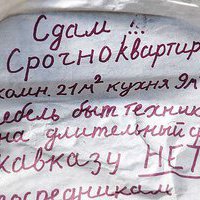 Сдам !!!
Срочно квартир
комн. 21м² кухня 9м
ебель быт техник
на длительный с
кавказу НЕТ
посредникам